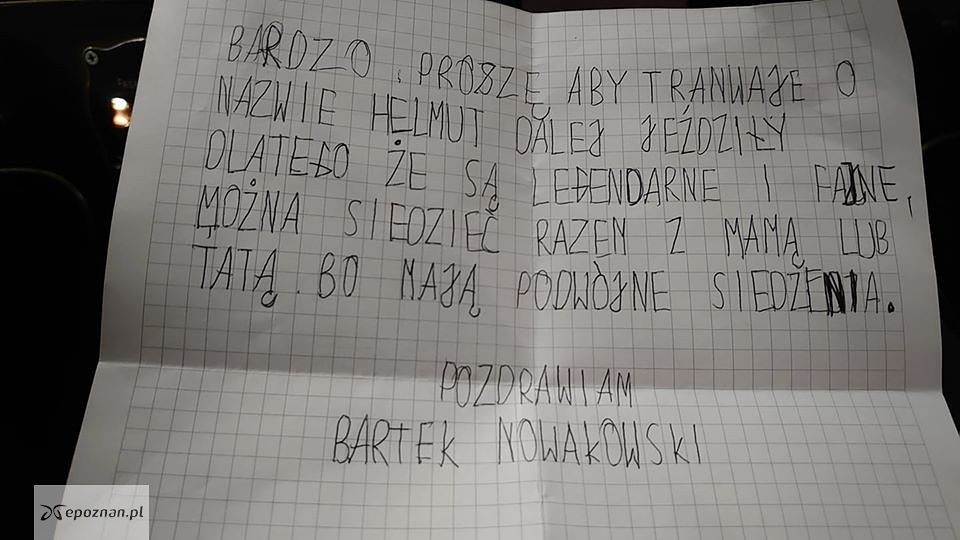 BARDZO . PROSZĘ ABY TRANWAJE O
NAZWIE HELMUT DALEJ JEŹDZIŁY
DLATEGO ŻE SĄ LEGENDARNE I FAJNE,
MOŻNA SIEDZIEĆ RAZEM Z MAMĄ LUB
TATĄ. BO MAJĄ PODWÓJNE SIEDZENIA.
POZDRAWIAM
BARTEK NOWAKOWSKI
epoznan.pl